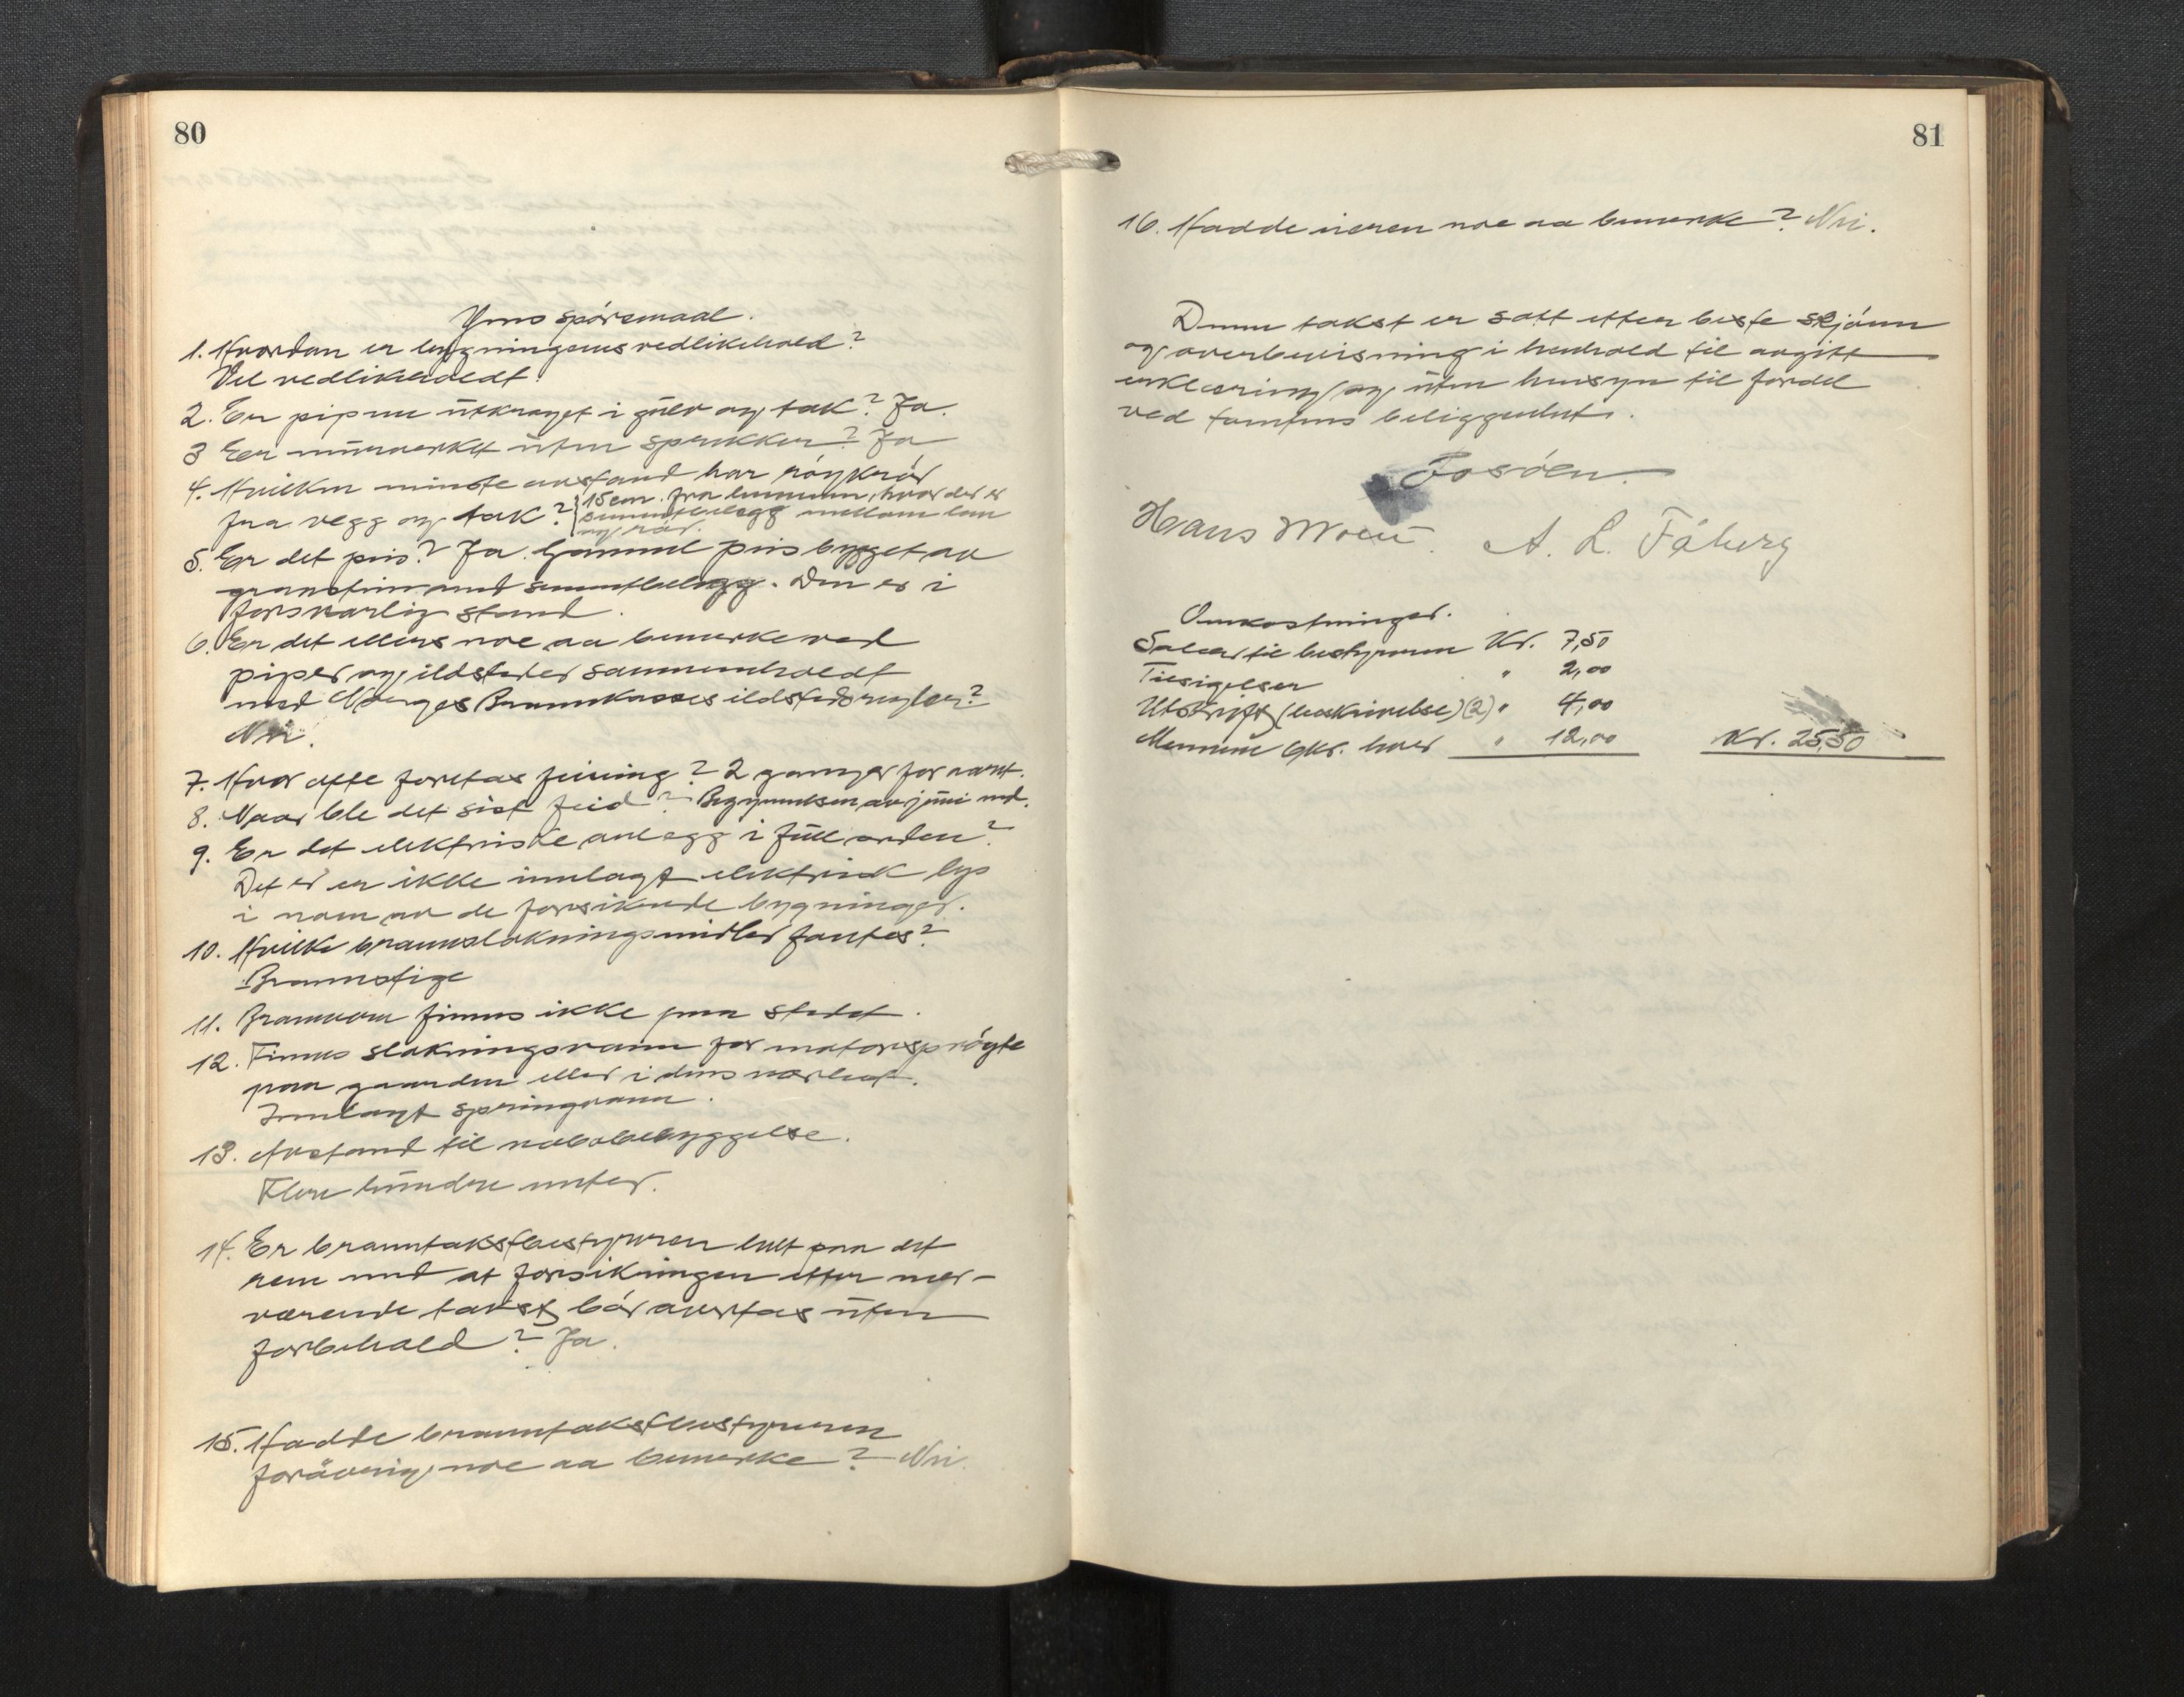 80
Yms spørsmaal.
1. Hvordan er bygningenes vedlikehold?
Vel vedlikeholdt.
2. Er pipene utkraget i gulv og tak? Ja.
3 Eer murverket uten sprekker? Ja
4. Hvilken minste avstand har røykrør
fra vegg og tak? 15 cm. fra lemmen, hvor der er
sementbelegg mellom lem
og rør.
5. Er det peis? Ja. Gammel peis bygget av
granstein med sementbelegg. Den er i
forsvarlig stand.
6. Er det ellers noe aa bemerke ved
piper og ildsteder sammenholdt
med Norges Brannkasses ildstedsregler?
Nei.
7. Hvor ofte foretas feiing? 2 ganger for aaret.
8. Naar ble det sist feid? Begynnelsen av juni md.
9. Er det elektriske anlegg i full orden?
Det er er ikke innlagt elektrisk lys
i noen av de forsikrede bygninger.
10. Hvilke brannslokningsmidler fantes?
Brannstige
11. Brannvern finnes ikke paa stedet.
12. Finnes slokningsvann for motorsprøyte
paa gaarden eller i dens nærhet.
Innlagt springvann.
13. Avstand til nabobebyggelse.
Flere hundre meter.
14. Er branntakstbestyreren helt paa det
rene med at forsikringen etter nær-
værende takst bør overtas uten
forbehold? Ja.
15. Hadde branntakstbestyreren
forøvrig noe aa bemerke? Nei.
81
16. Hadde eieren noe aa bemerke? Nei.
Denne takst er satt etter beste skjønn
og overbevisning i henhold til avgitt
erklæring og uten hensyn til fordel
ved tomtens beliggenhet.
Fosøen.
Hans Moen. A. L. Fåberg
Omkostninger.
Salær til bestyreren Kr. 7,50
Tilsigelser " 2,00
Utskrift (beskrivelse) (2) " 4,00
Mennene 6 kr. hver " 12,00 Kr. 25,50